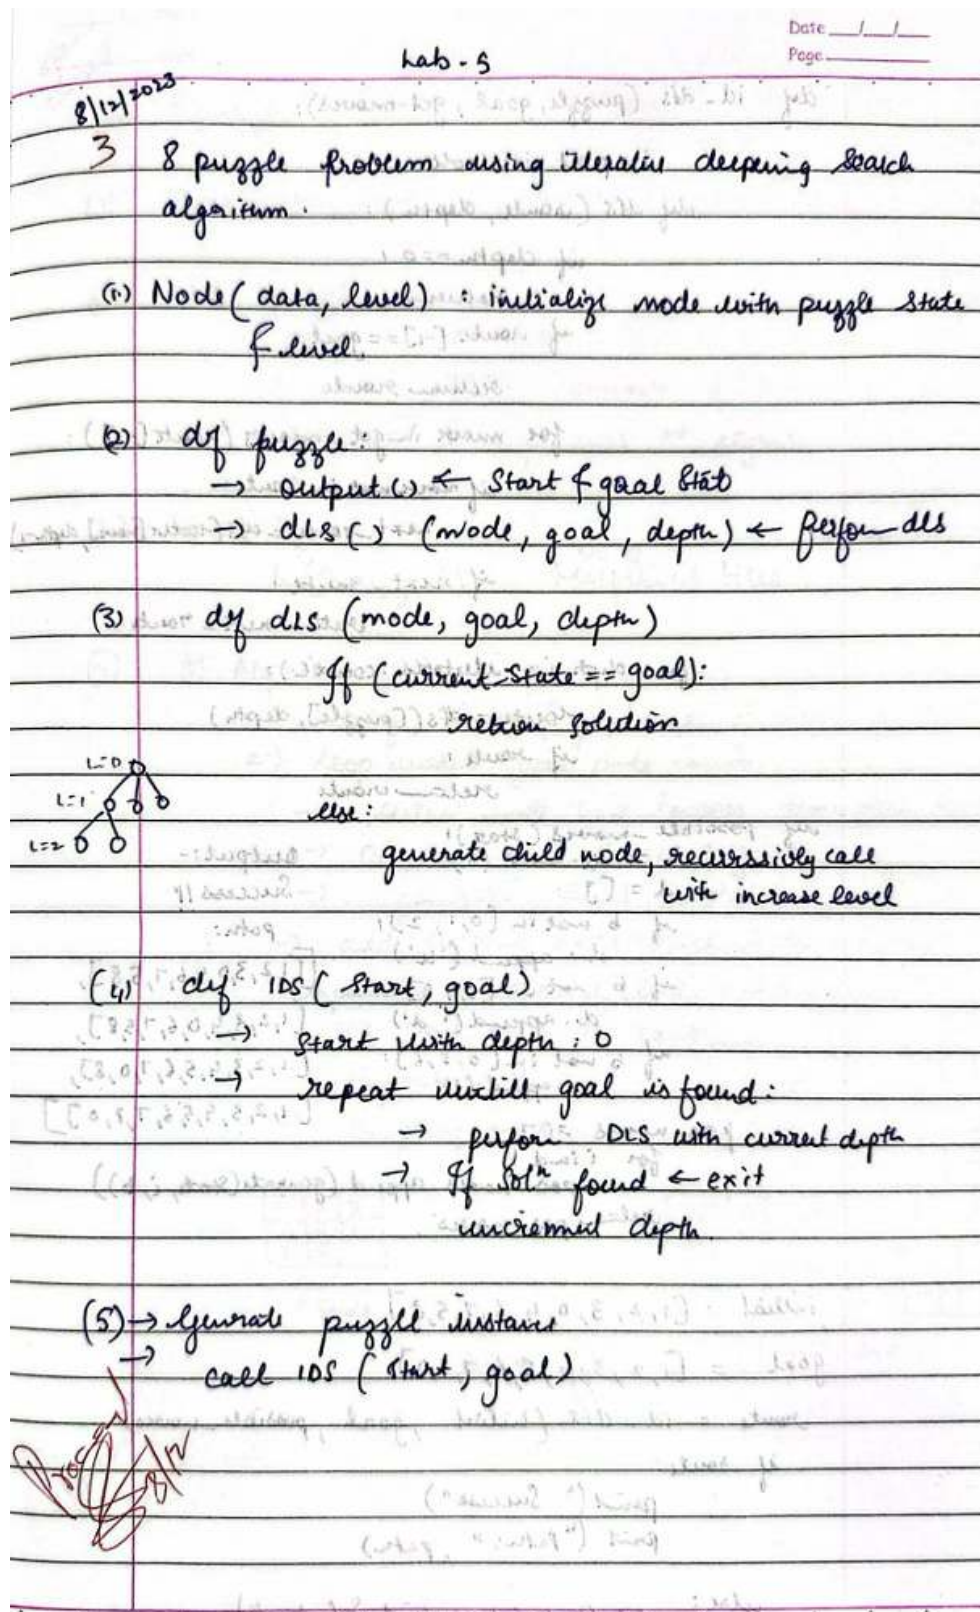 Date __/__/__
Page
Lab - 5
8/12/2023
3 8 puzzle problem using iterative deeping search
algorithm.
(1) Node (data, level) : initialize node with puzzle state
& level.
(2) def puzzle:
→ output () ← Start & goal stat
→ dLS () (node, goal, depth) ← perfom dls
(3) def dLS (node, goal, depth)
If (current-state == goal):
return solution
L=0
L=1
else:
L=2
generate child node, recurssively call
with increase level
(4) def IDS ( start, goal)
→ start with depth : 0
→ repeat untill goal is found:
→ perform DLS with current depth
→ If solⁿ found ← exit
depth.
(5) → Generate puzzle instance
→ call IDS ( start, goal)
8/12